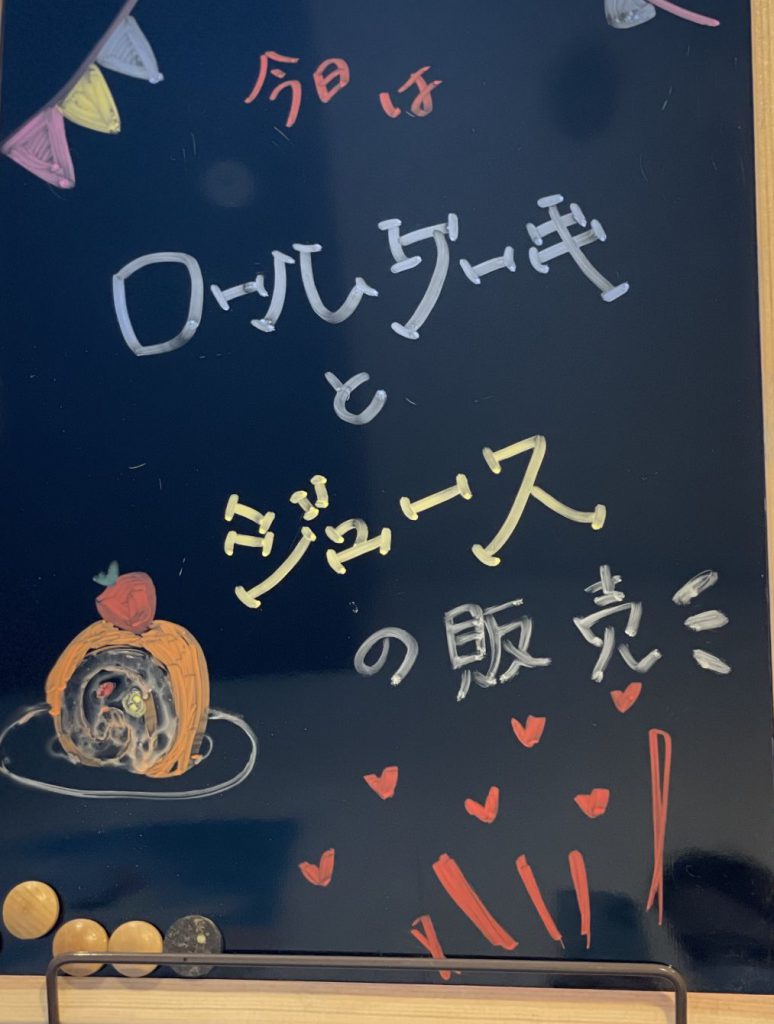 今日は
ロールケーキ
と
ジュース
の販売